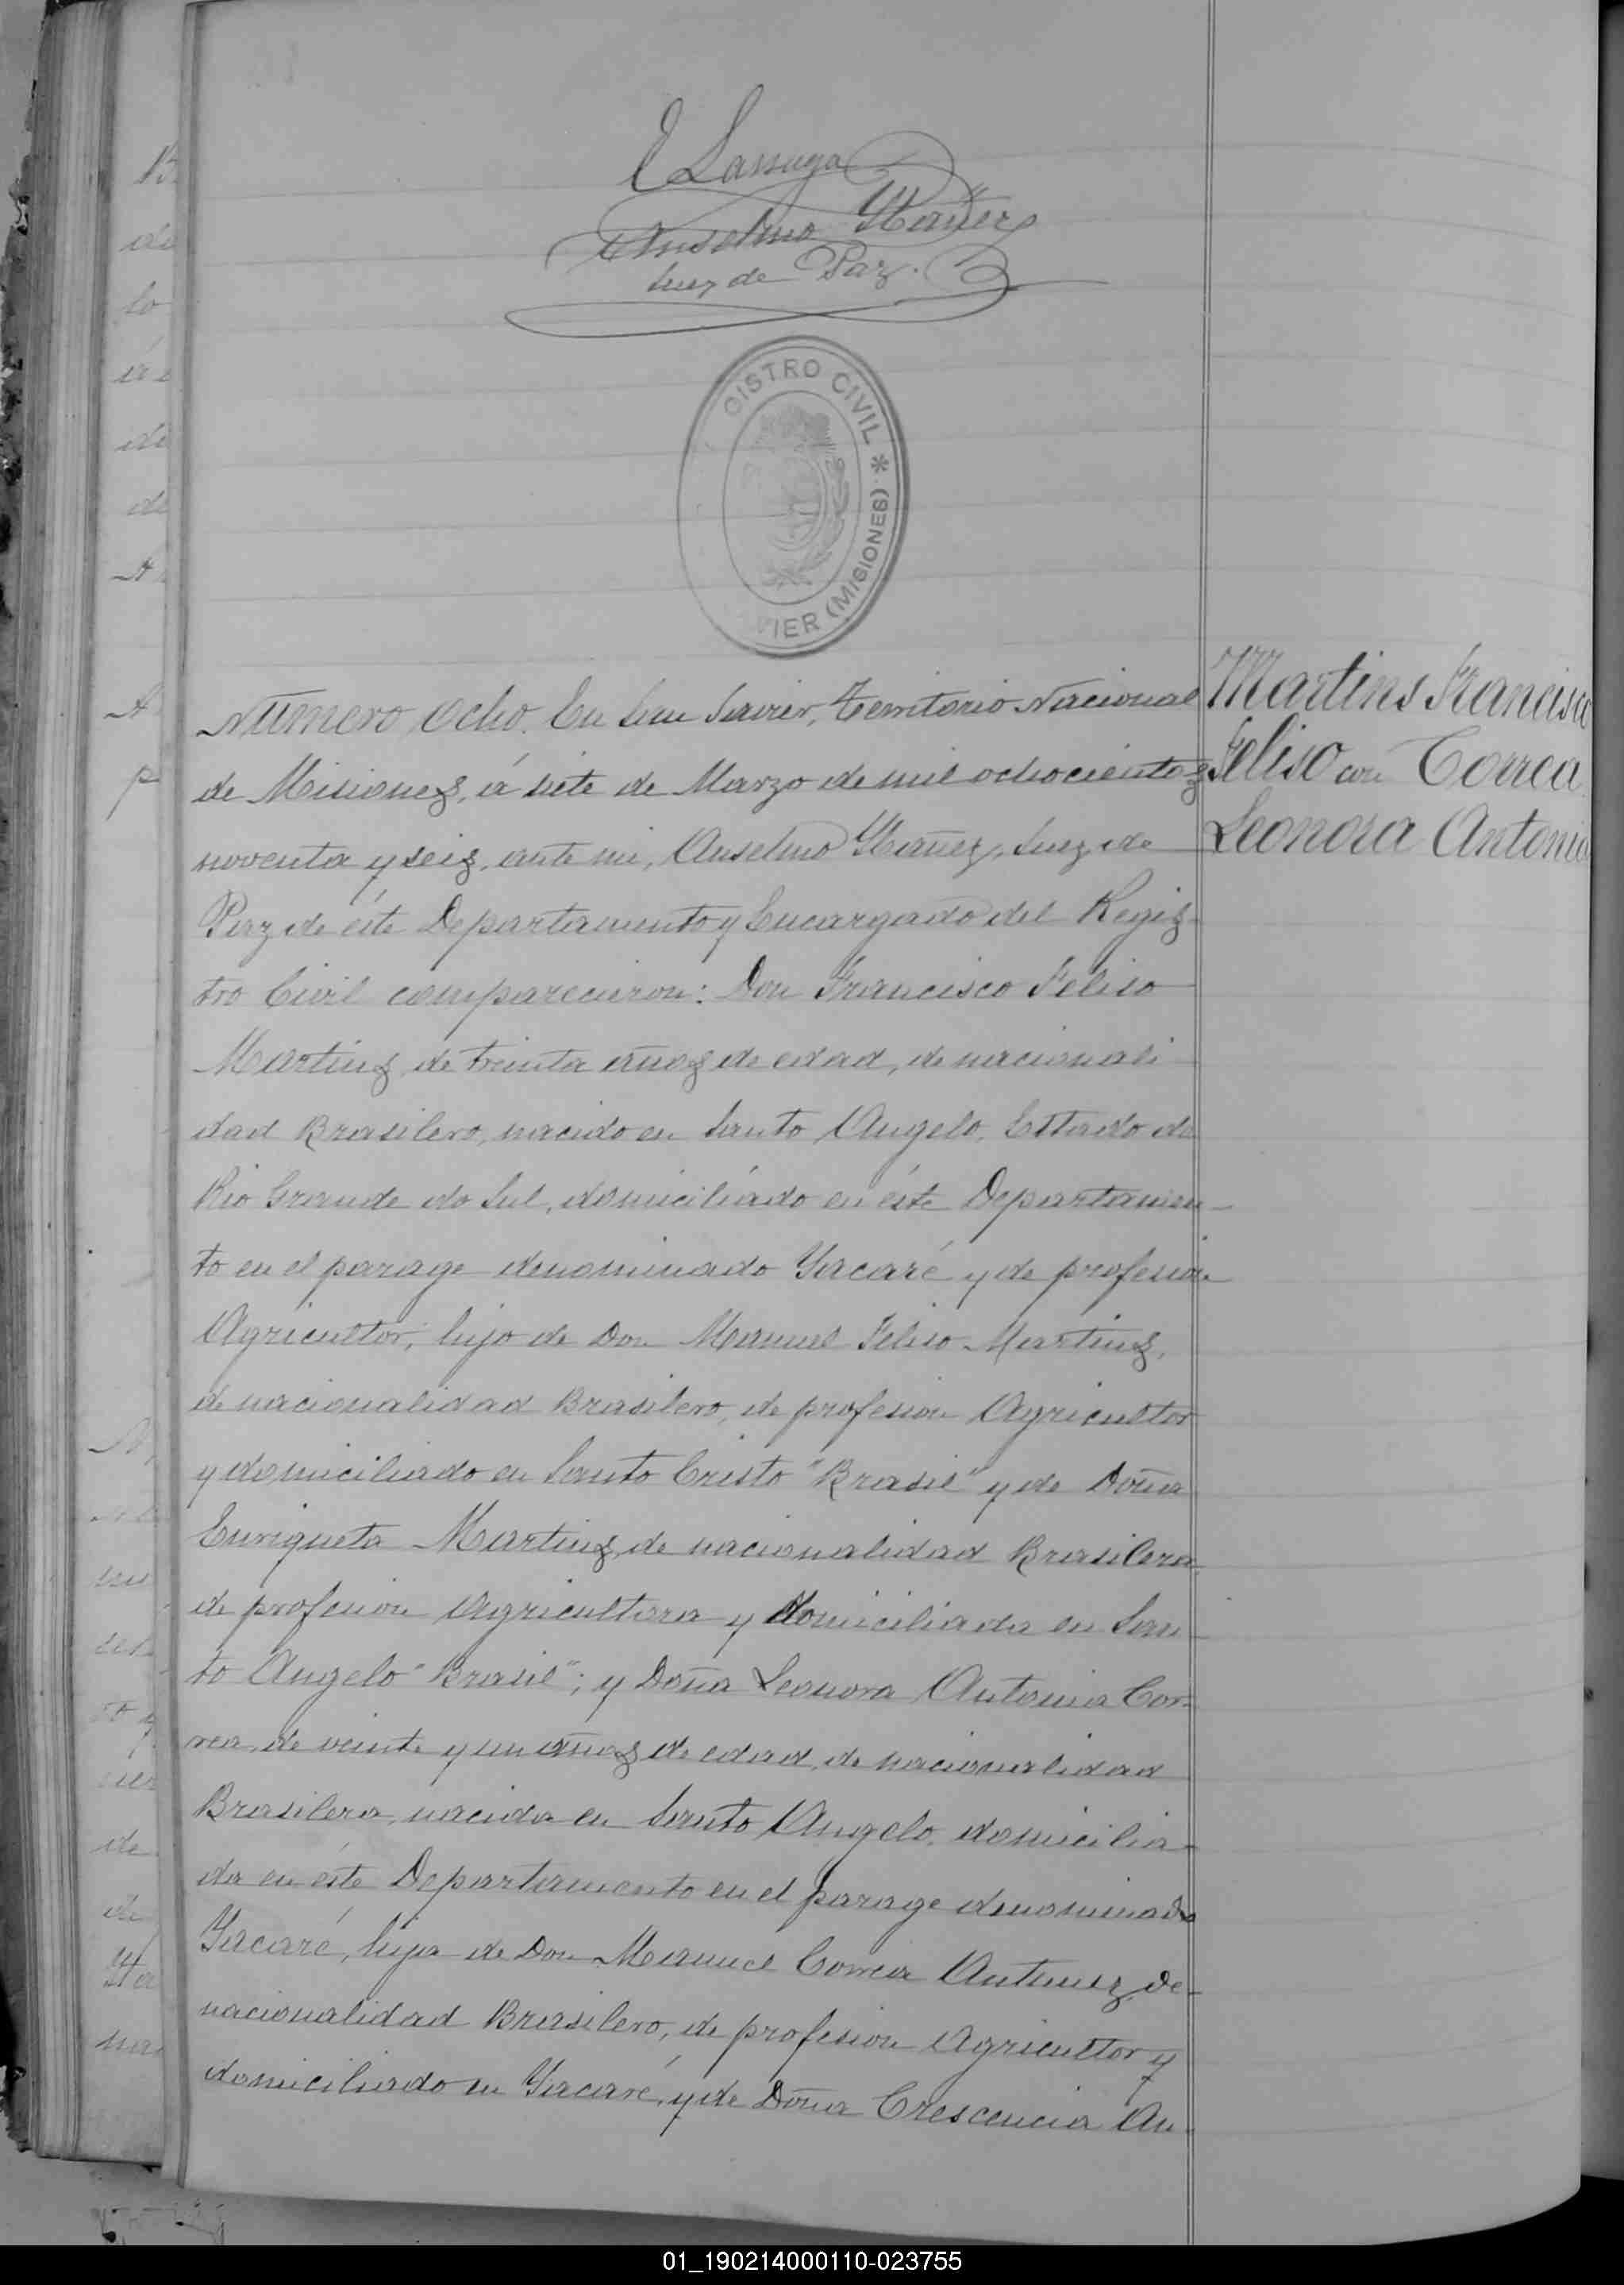 E Lassaga
Anselmo Ybañez
Juez de Paz.
GISTRO CIVIL * VIER (MISIONES)
Número Ocho. En San Javier, Territorio Nacional
de Misiones, á siete de Marzo de mil ochocientos
noventa y seis, ante mi, Anselmo Ybañez, Juez de
Paz de éste Departamento y Encargado del Regis-
tro Civil comparecieron: Don Francisco Feliso
Martins, de treinta años de edad, de nacionali-
dad Brasilero, nacido en Santo Angelo, Estado de
Rio Grande do Sul, domiciliado en éste Departamen-
to en el parage denominado Yacaré y de profesion
Agricultor, hijo de Don Manuel Feliso Martins,
de nacionalidad Brasilero, de profesion Agricultor
y domiciliado en Santo Cristo "Brasil" y de Doña
Enriqueta Martins, de nacionalidad Brasilera,
de profesion Agricultora y domiciliada en San-
to Angelo "Brasil"; y Doña Leonora Antonia Cor-
rea, de veinte y un años de edad, de nacionalidad
Brasilera, nacida en Santo Angelo, domicilia-
da en éste Departamento en el parage denominado
Yacaré, hija de Don Manuel Correa Antunez, de
nacionalidad Brasilero, de profesion Agricultor y
domiciliado en Yacaré, y de Doña Crescencia An-
Martins Francisco
Feliso con Correa
Leonora Antonia
01_190214000110-023755